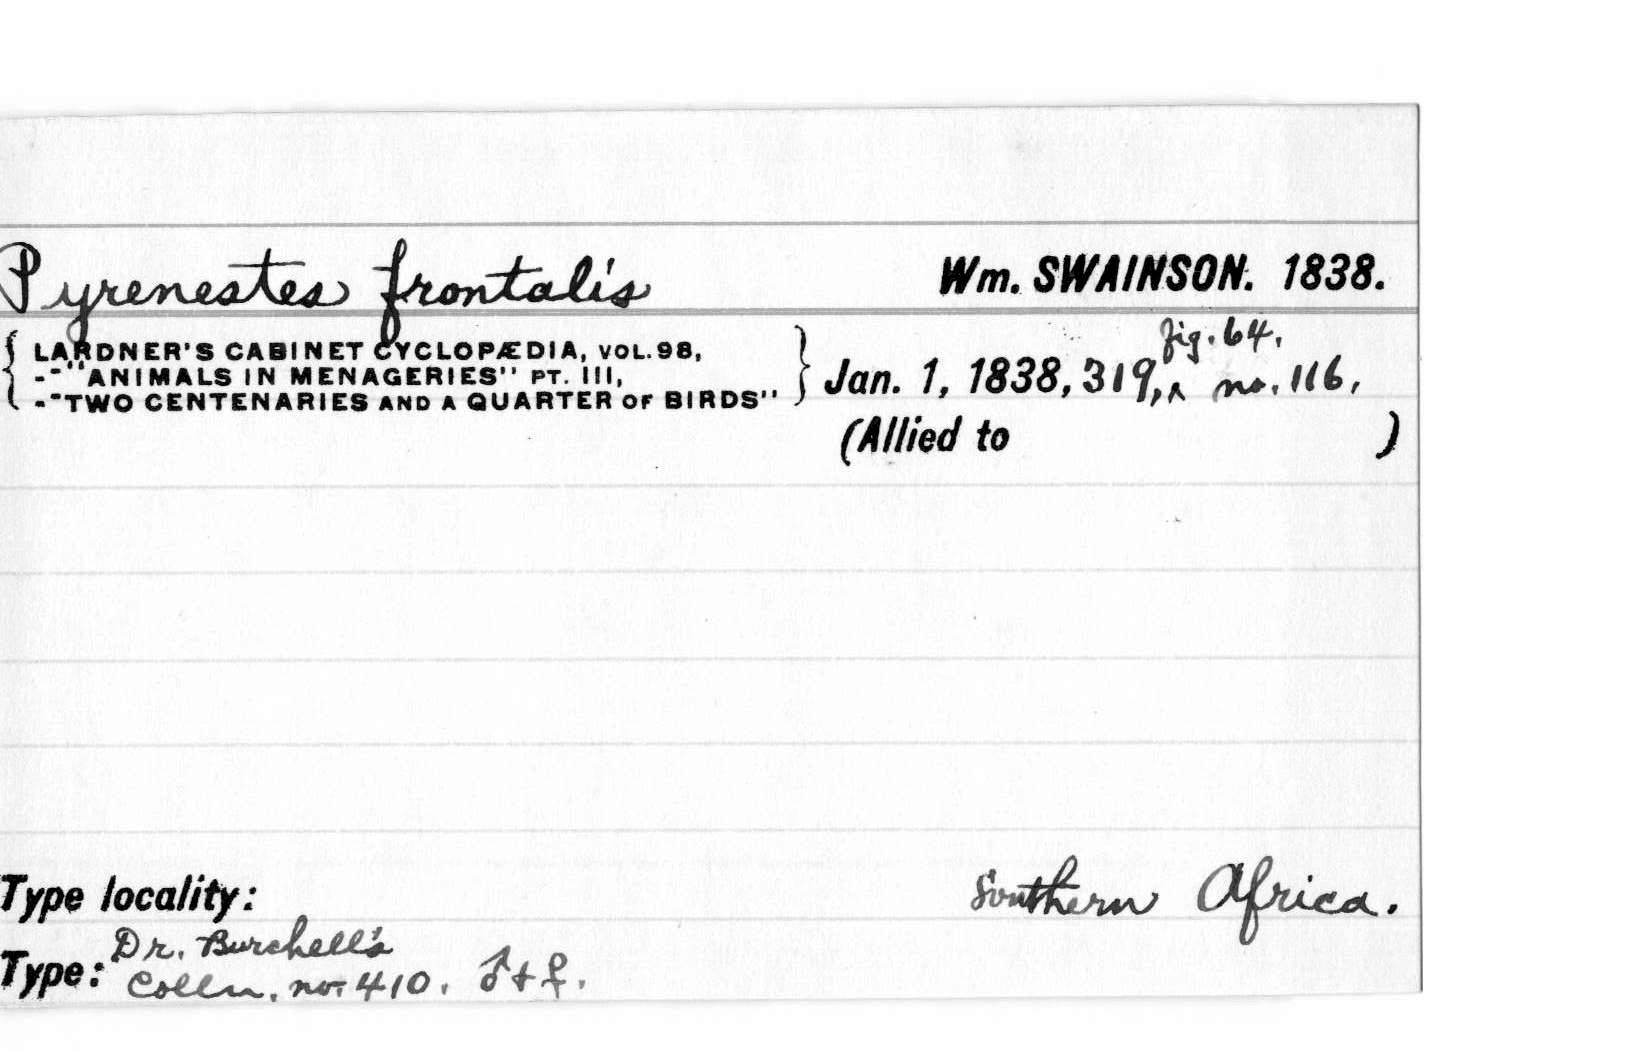 Pyrenestes frontalis Wm. SWAINSON. 1838.
{ LARDNER'S CABINET CYCLOPÆDIA, VOL. 98, } fig. 64.
--"ANIMALS IN MENAGERIES" PT. III, Jan. 1, 1838, 319,^ no. 116,
--"TWO CENTENARIES AND A QUARTER OF BIRDS"
(Allied to )
Type locality: Southern Africa.
Dr. Burchell's
Type: Colln. no. 410. ♂ + ♀.